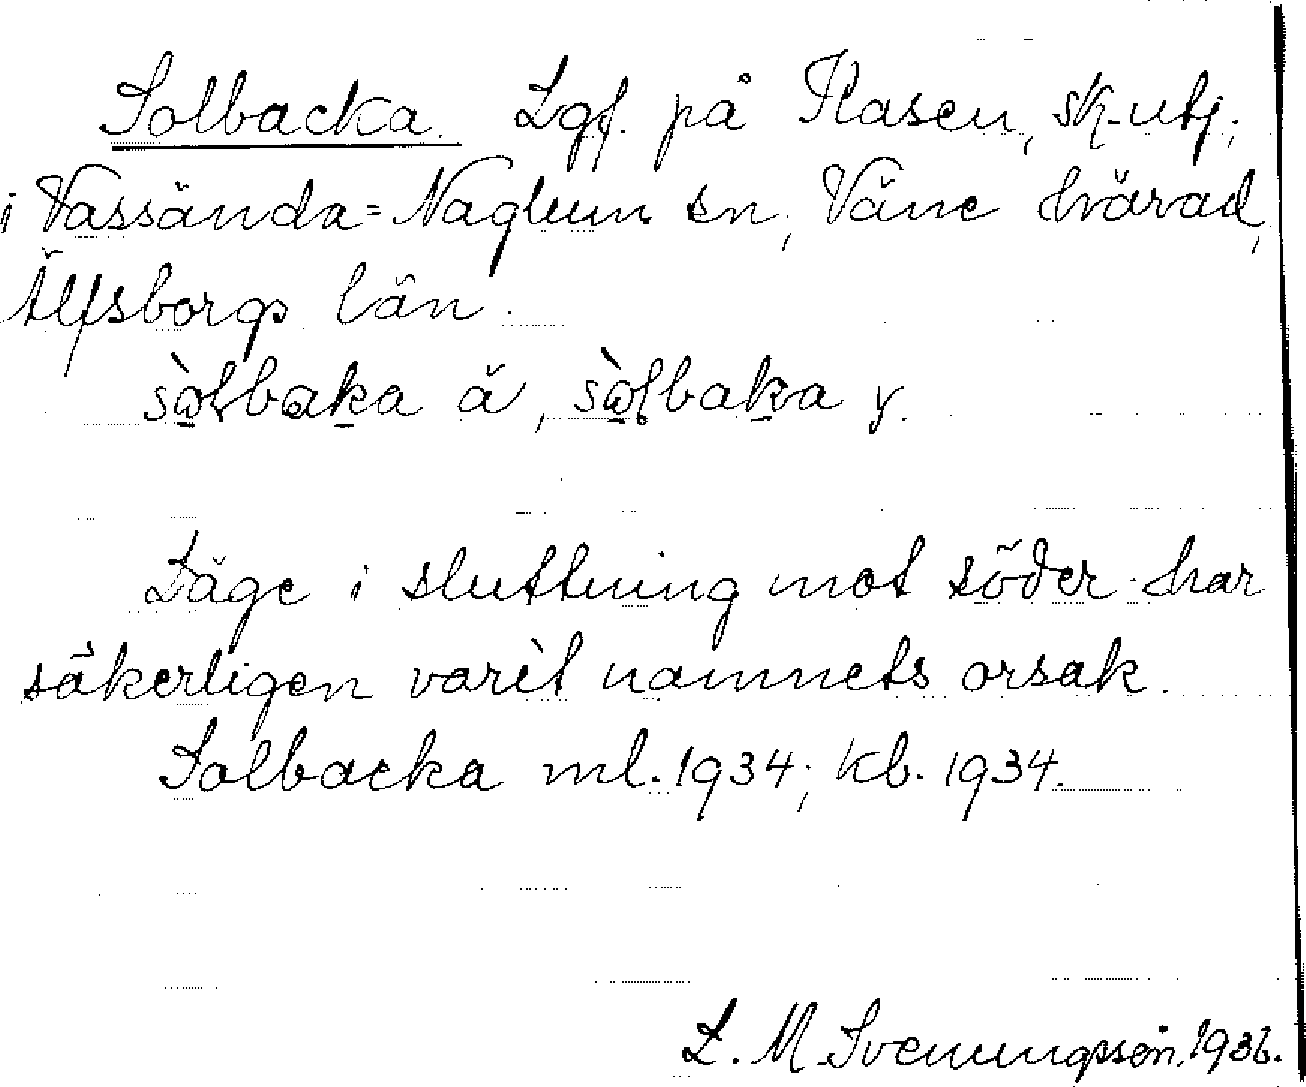 Solbacka. Lgf. på Hasen, sk.-utj.,
i Vassända=Naglum sn, Väne härad,
Älfsborgs län.
sòlbaka ä, sòlbaka y.
Läge i sluttning mot söder har
säkerligen varit namnets orsak.
Solbacka ml. 1934; kb. 1934.
L. M. Svenungsson, 1936.